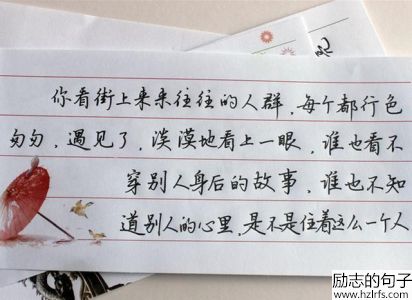 你看街上来来往往的人群,每个都行色
匆匆,遇见了,漠漠地看上一眼,谁也看不
穿别人身后的故事,谁也不知
道别人的心里,是不是住着这么一个人
励志的句子
www.hzlrfs.com